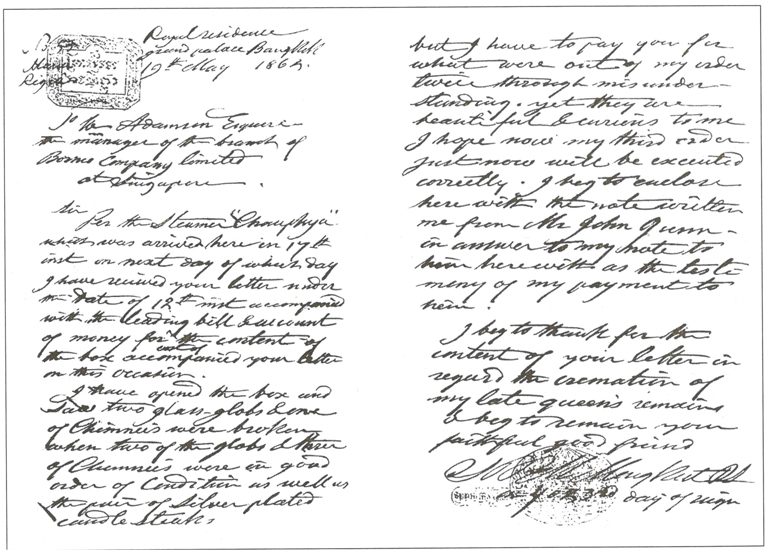 Royal residence
Grand palace Bangkok
19th May 1864.
To Wm Adamson Esquire
the manager of the branch of
Borneo Company limited
at Singapore.
Sir
Per the Steamer "Chowphya"
which was arrived here in 17th
inst on next day of which day
I have received your letter under
the date of 12th inst accompanied
with the leading bill & account
of money for the cost of the content of
the box accompanied your letter
on this occasion.
I have opened the box and
Saw two glass-globs & one
of Chimnies were broken
when two of the globs & three
of Chimnies were in good
order of Condition as well as
the pair of Silver plated
candle steaks
but I have to pay you for
what were out of my order
twice through misunder-
standing. yet they are
beautiful & curious to me
I hope now my third order
just now will be executed
correctly. I beg to enclose
here with the note written
me from Mr John Gunn
in answer to my note to
him herewith as the testi
mony of my payment to
him.
I beg to thank for the
content of your letter in
regard the cremation of
my late queen's remains
& beg to remain your
faithful good friend
day of reign